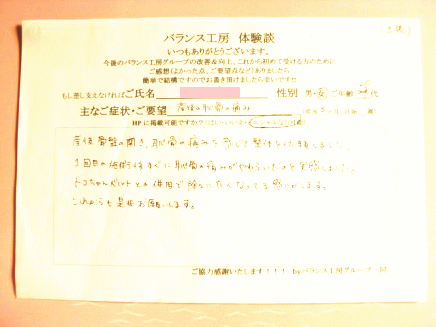 バランス工房 体験談
いつもありがとうございます。
今後のバランス工房グループの改善&向上、これから初めて受ける方のために
ご感想(よかった点、ご要望点など)ありましたら
簡単で結構ですのでお書き頂けましたら幸いです!!
もし差し支えなければご氏名 性別 男・女 ご年齢 代
主なご症状・ご要望 産後の恥骨の痛み
HPに掲載可能ですか?
産後骨盤の開き、恥骨の痛みを感じて整体をうけました。
1回目の施術後すぐに恥骨の痛みがやわらいだのを実感しました。
トコちゃんベルトとの併用で
これからも是非お願いします。
ご協力感謝いたします!!! byバランス工房グループ